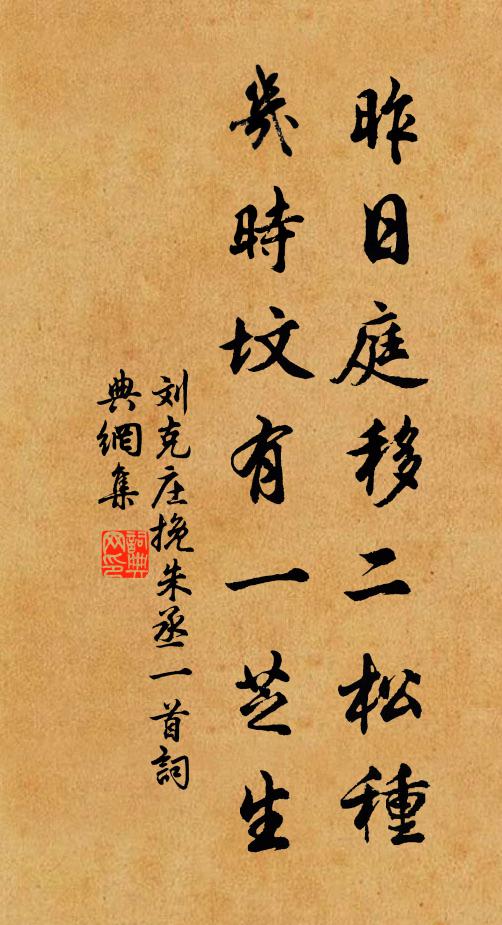 昨日庭移二松種
幾時坟有一芝生
刘克庄挽朱丞一首詞
典網集
詞典网印